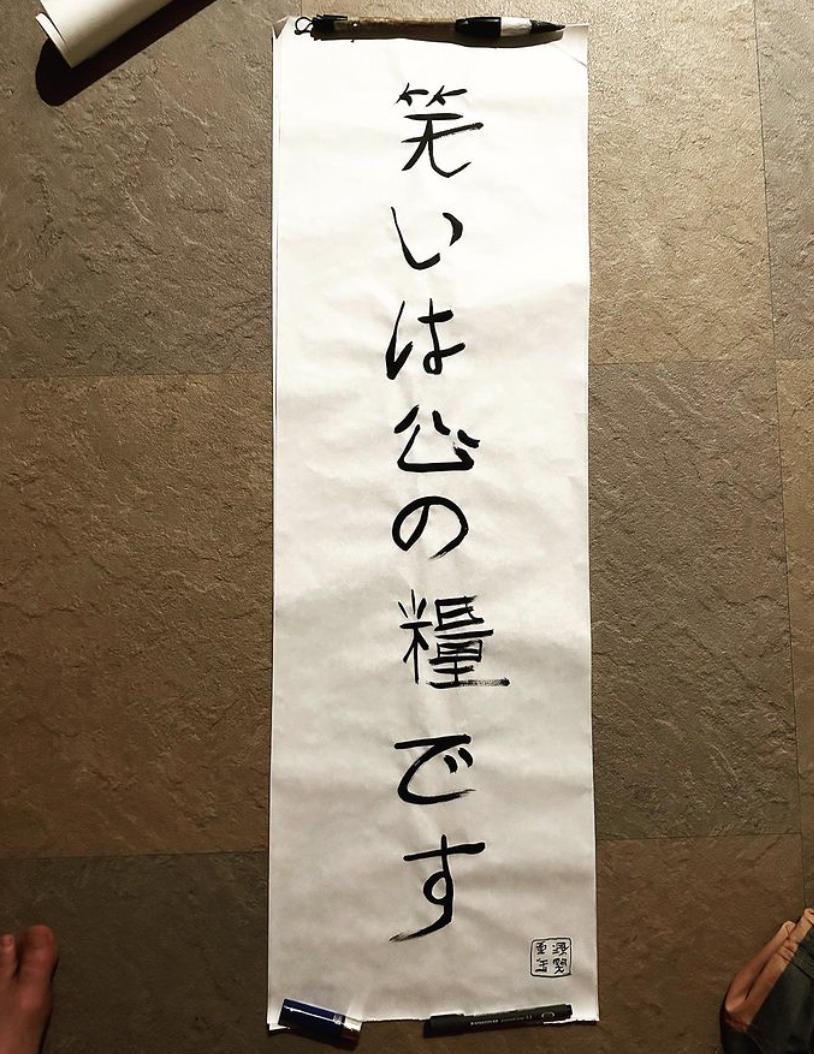 笑いは心の糧です